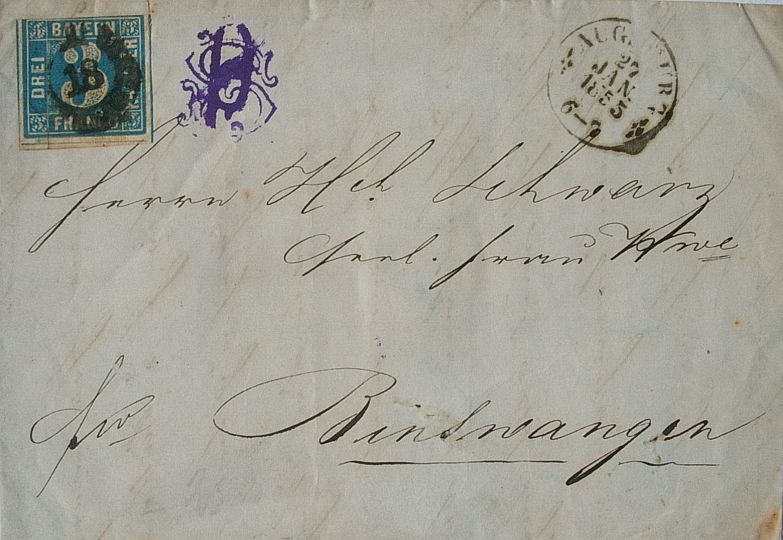 BAYERN
DREI
3
18
AUGSBURG
27
JAN.
1855
6-7
Herrn Hch Schwarz
seel. Frau Wwe
Binswangen